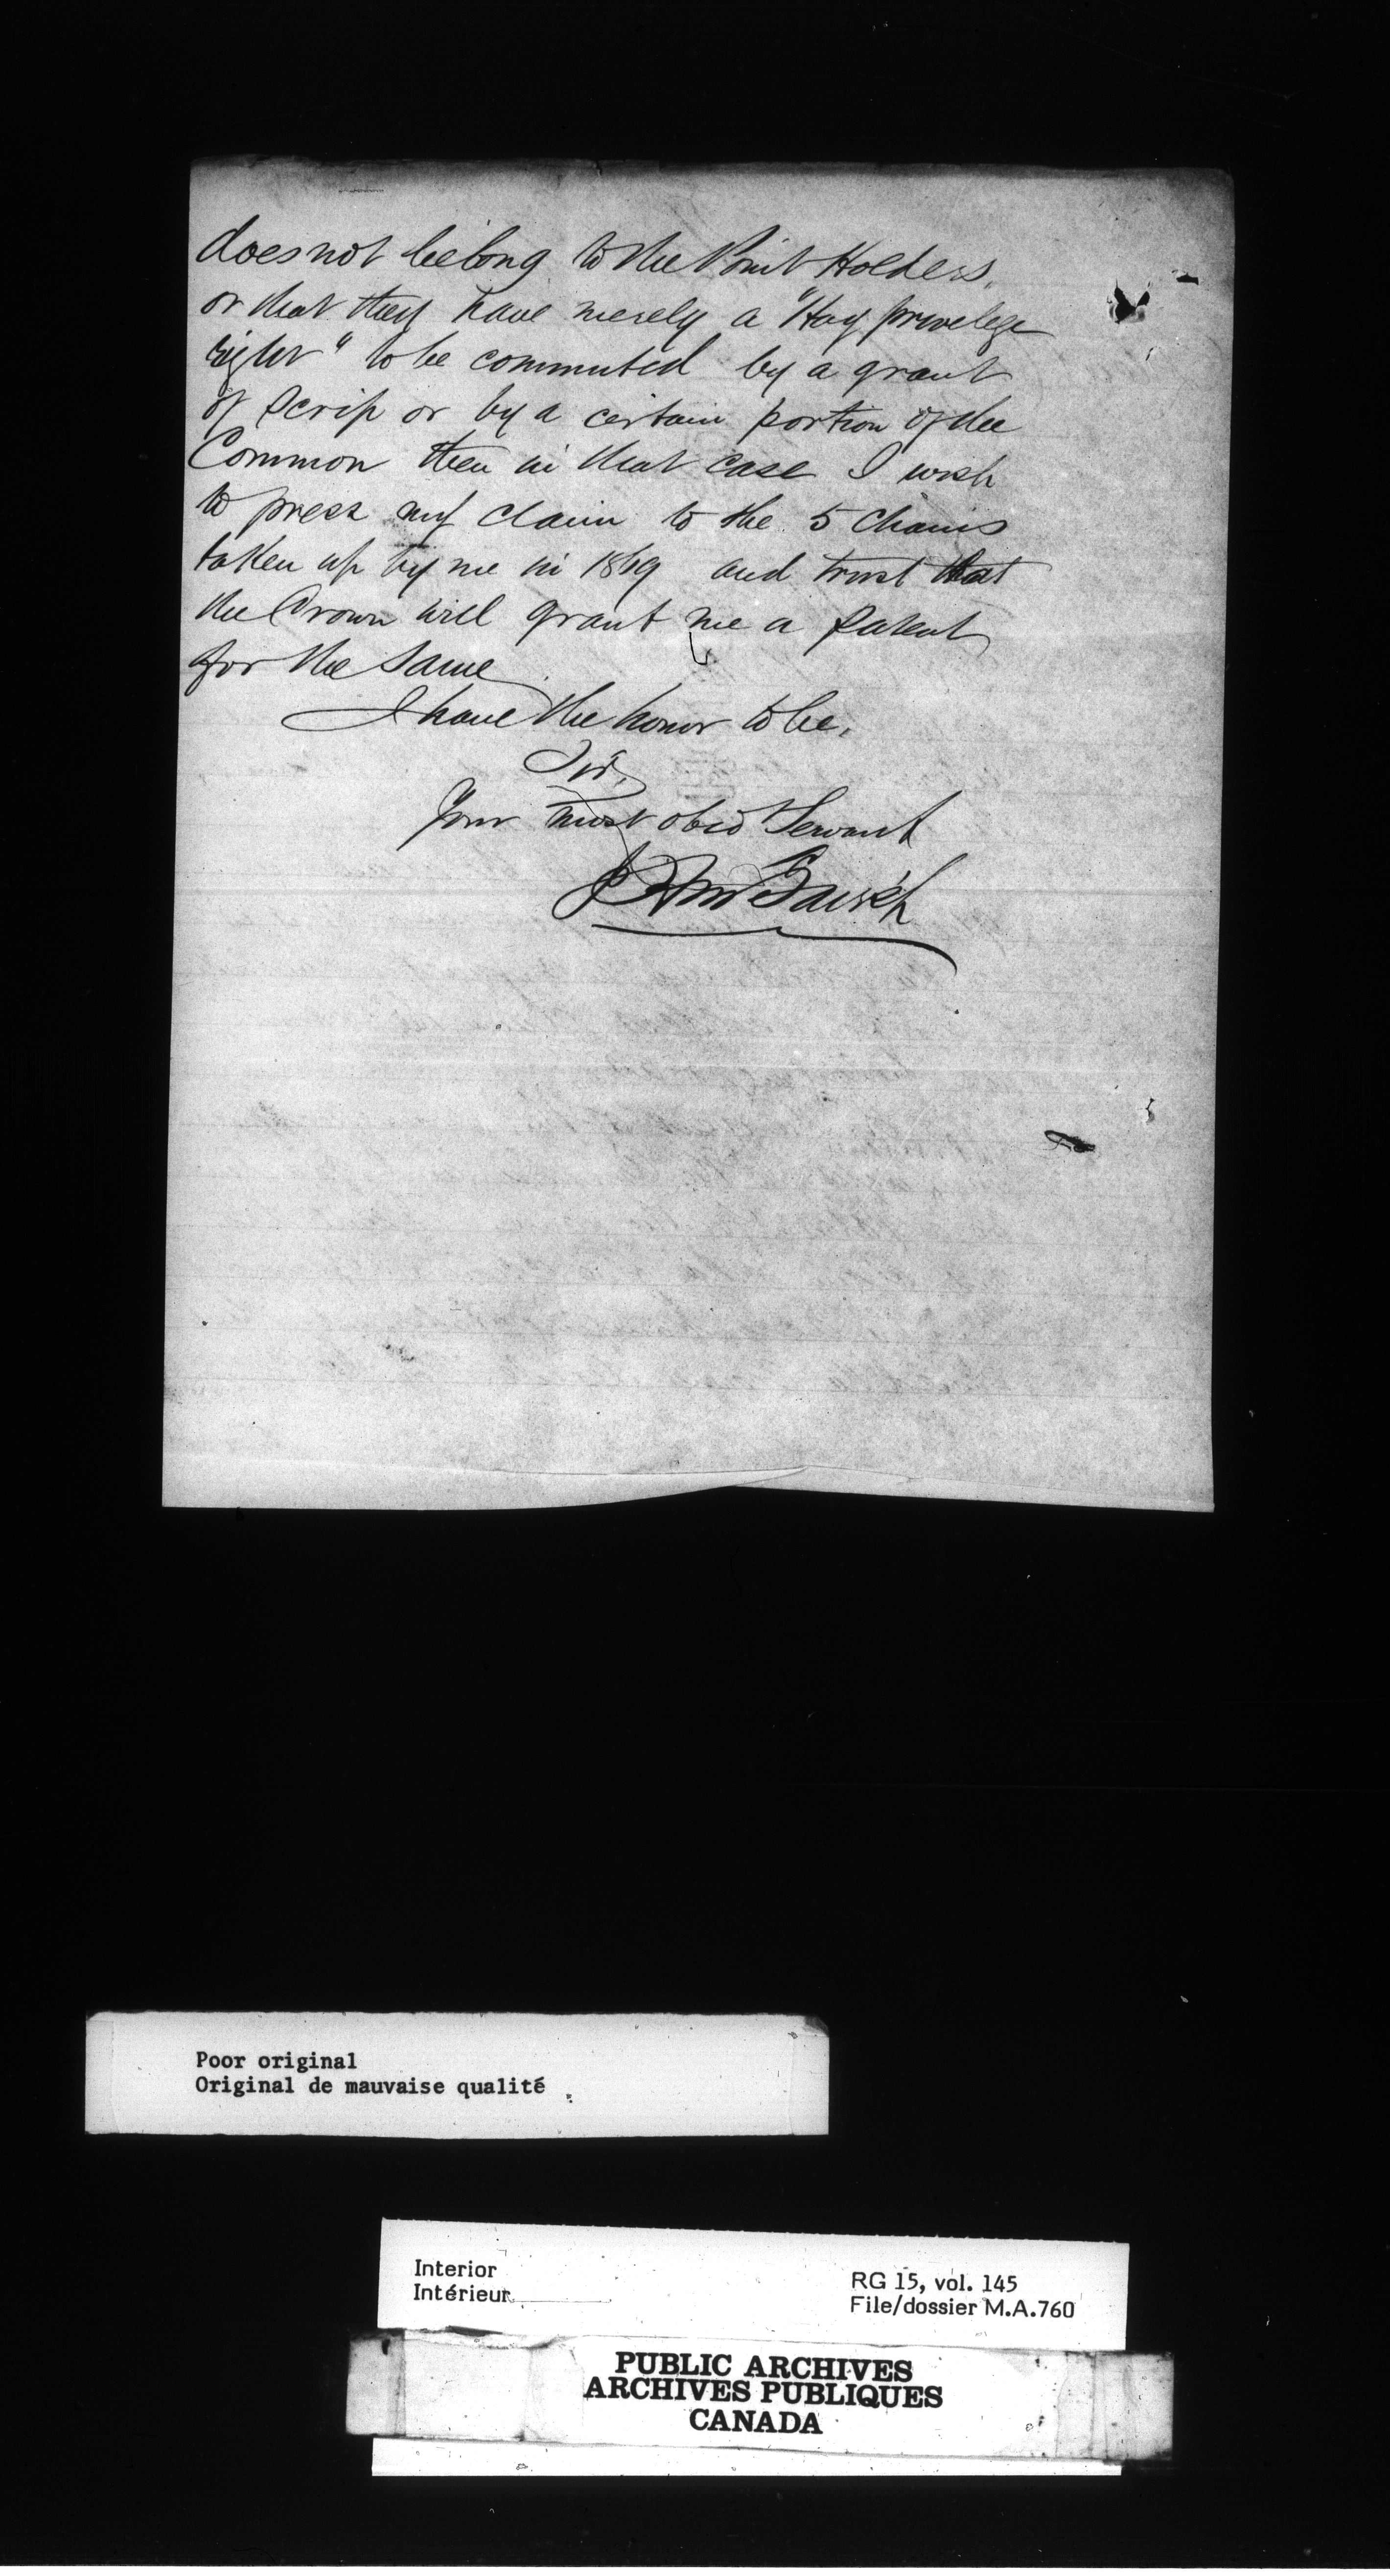 does not belong to the Point Holders,
or that they have merely a "Hay privelege
right" to be commuted by a grant
of Scrip or by a certain portion of the
Common then in that case I wish
to press my claim to the 5 Chains
taken up by me in 1869 and trust that
the Crown will grant me a patent
for the same
I have the honor to be,
Sir,
Your most obed Servant
Poor original
Original de mauvaise qualité
Interior
Intérieur
RG 15, vol. 145
File/dossier M.A.760
PUBLIC ARCHIVES
ARCHIVES PUBLIQUES
CANADA